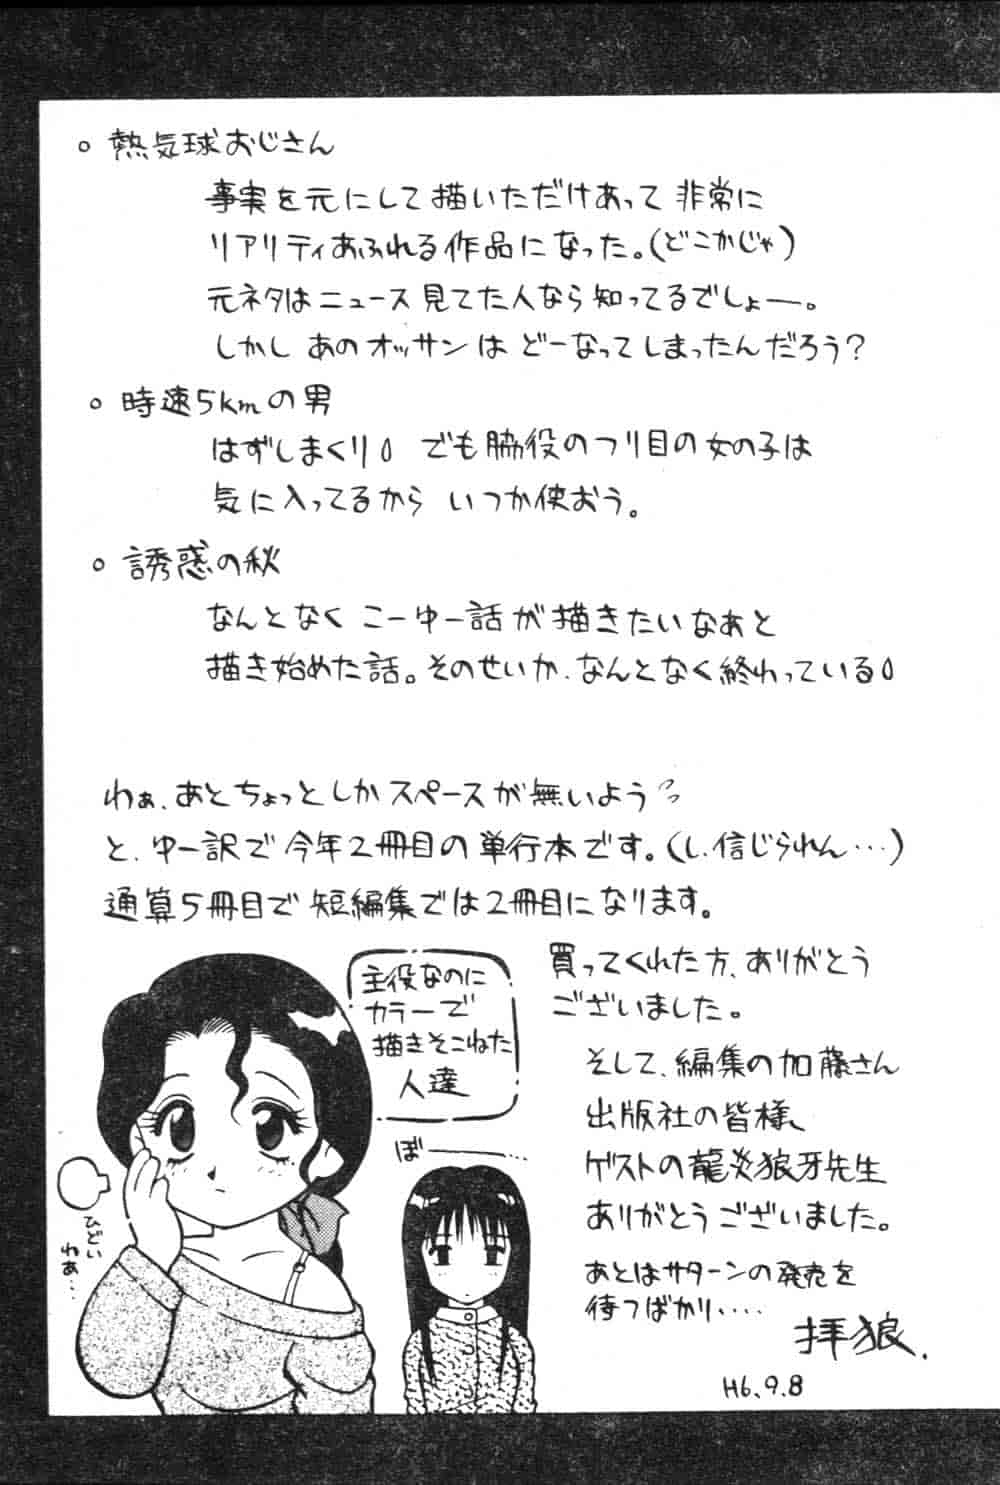 ○ 熱気球おじさん
事実を元にして描いただけあって非常に
リアリティあふれる作品になった。(どこがじゃ)
元ネタはニュース見てた人なら知ってるでしょー。
しかし あのオッサンは どーなってしまったんだろう？
○ 時速5kmの男
はずしまくり でも脇役のつり目の女の子は
気に入ってるから いつか使おう。
○ 誘惑の秋
なんとなく こーゆー話が描きたいなあと
描き始めた話。そのせいか、なんとなく終わっている
わぁ、あとちょっとしかスペースが無いよう
と、ゆー訳で今年2冊目の単行本です。(し、信じられん…)
通算5冊目で短編集では2冊目になります。
買ってくれた方、ありがとう
ございました。
そして、編集の加藤さん
出版社の皆様、
ゲストの龍炎狼牙先生
ありがとうございました。
あとはサターンの発売を
待つばかり‥‥
拝狼.
H6.9.8
主役なのに
カラーで
描きそこねた
人達
ぼー
ひどい
わぁ…